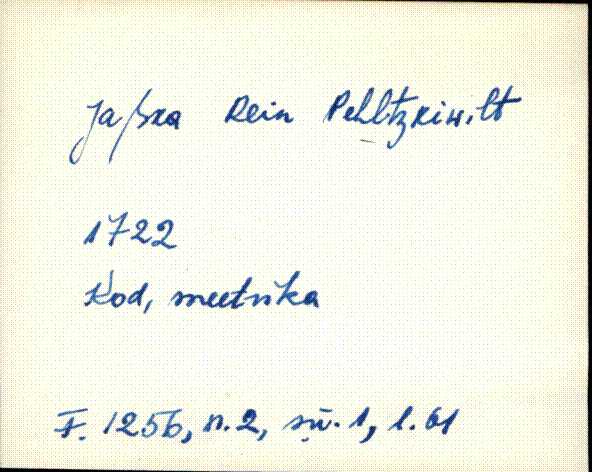 Jaßka Rein Pehltzkiw.lt
1722
Kod, meetrika
F. 1256, n. 2, sü. 1, l. 61